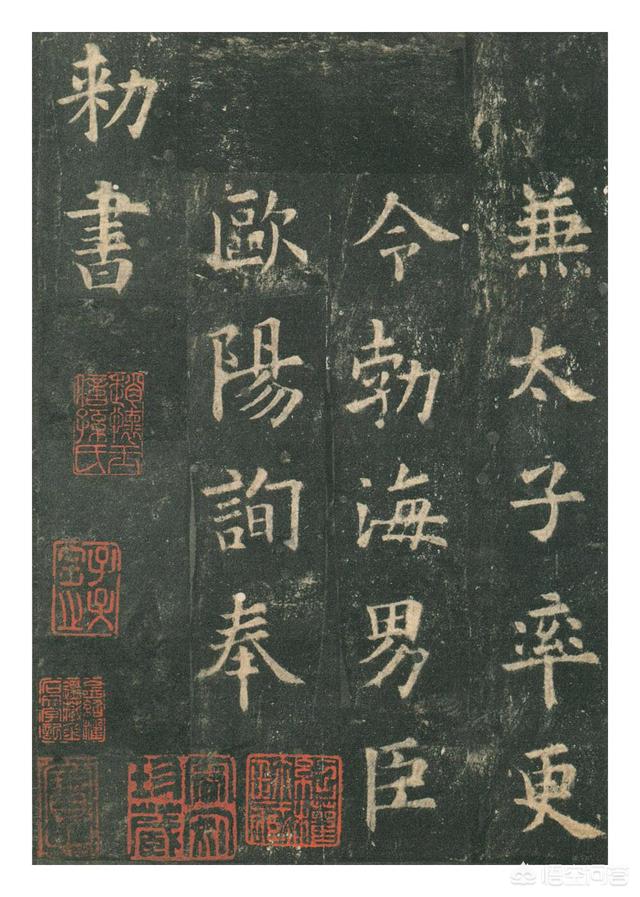 兼太子率更
令勃海男臣
歐陽詢奉
勑書
悟空问答